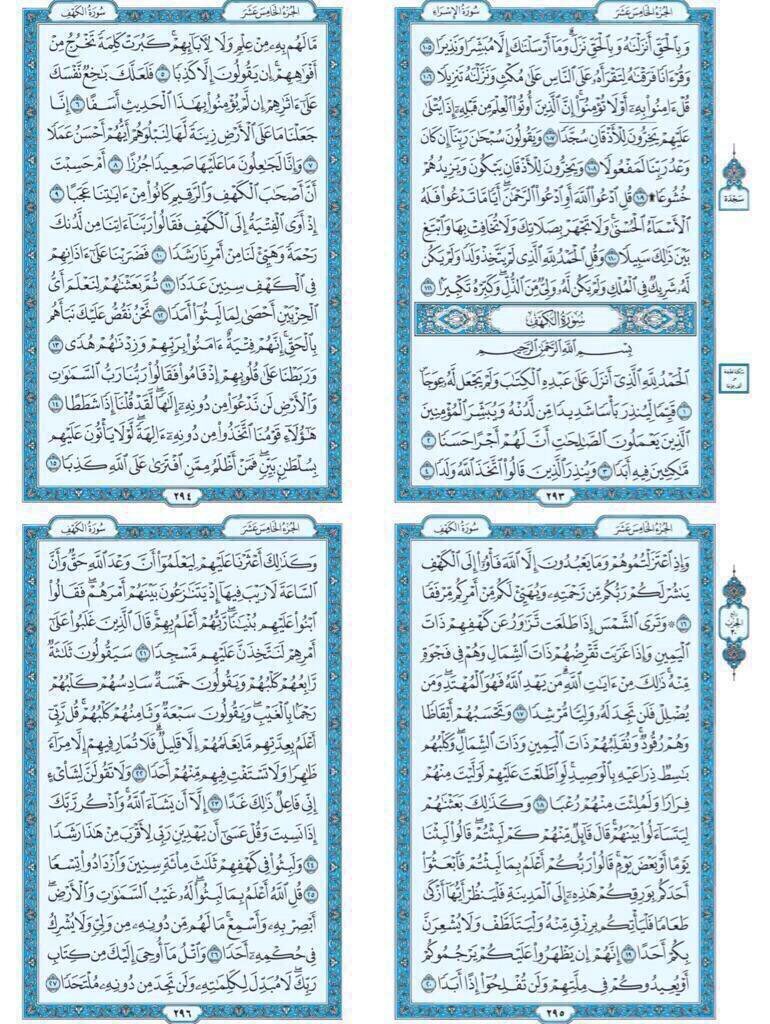 الجزء الخامس عشر
سورة الإسراء
وبالحق أنزلناه وبالحق نزل وما أرسلناك إلا مبشرا ونذيرا ١٠٥
وقرءانا فرقناه لتقرأه على الناس على مكث ونزلناه تنزيلا ١٠٦
قل ءامنوا به أو لا تؤمنوا إن الذين أوتوا العلم من قبله إذا يتلى
عليهم يخرون للأذقان سجدا ١٠٧ ويقولون سبحان ربنا إن كان
وعد ربنا لمفعولا ١٠٨ ويخرون للأذقان يبكون ويزيدهم
خشوعا ۩ ١٠٩ قل ادعوا الله أو ادعوا الرحمن أيا ما تدعوا فله
الأسماء الحسنى ولا تجهر بصلاتك ولا تخافت بها وابتغ
بين ذلك سبيلا ١١٠ وقل الحمد لله الذي لم يتخذ ولدا ولم يكن
له شريك في الملك ولم يكن له ولي من الذل وكبره تكبيرا ١١١
سورة الكهف
بسم الله الرحمن الرحيم
الحمد لله الذي أنزل على عبده الكتاب ولم يجعل له عوجا
١ قيما لينذر بأسا شديدا من لدنه ويبشر المؤمنين
الذين يعملون الصالحات أن لهم أجرا حسنا ٢
ماكثين فيه أبدا ٣ وينذر الذين قالوا اتخذ الله ولدا ٤
٢٩٣
سجدة
الجزء الخامس عشر
سورة الكهف
ما لهم به من علم ولا لآبائهم كبرت كلمة تخرج من
أفواههم إن يقولون إلا كذبا ٥ فلعلك باخع نفسك
على ءاثارهم إن لم يؤمنوا بهذا الحديث أسفا ٦ إنا
جعلنا ما على الأرض زينة لها لنبلوهم أيهم أحسن عملا
٧ وإنا لجاعلون ما عليها صعيدا جرزا ٨ أم حسبت
أن أصحاب الكهف والرقيم كانوا من ءاياتنا عجبا ٩
إذ أوى الفتية إلى الكهف فقالوا ربنا ءاتنا من لدنك
رحمة وهيئ لنا من أمرنا رشدا ١٠ فضربنا على ءاذانهم
في الكهف سنين عددا ١١ ثم بعثناهم لنعلم أي
الحزبين أحصى لما لبثوا أمدا ١٢ نحن نقص عليك نبأهم
بالحق إنهم فتية ءامنوا بربهم وزدناهم هدى ١٣
وربطنا على قلوبهم إذ قاموا فقالوا ربنا رب السماوات
والأرض لن ندعوا من دونه إلها لقد قلنا إذا شططا ١٤
هؤلاء قومنا اتخذوا من دونه ءالهة لولا يأتون عليهم
بسلطان بين فمن أظلم ممن افترى على الله كذبا ١٥
٢٩٤
الجزء الخامس عشر
سورة الكهف
وإذ اعتزلتموهم وما يعبدون إلا الله فأووا إلى الكهف
ينشر لكم ربكم من رحمته ويهيئ لكم من أمركم مرفقا
١٦ ۞ وترى الشمس إذا طلعت تزاور عن كهفهم ذات
اليمين وإذا غربت تقرضهم ذات الشمال وهم في فجوة
منه ذلك من ءايات الله من يهد الله فهو المهتد ومن
يضلل فلن تجد له وليا مرشدا ١٧ وتحسبهم أيقاظا
وهم رقود ونقلبهم ذات اليمين وذات الشمال وكلبهم
باسط ذراعيه بالوصيد لو اطلعت عليهم لوليت منهم
فرارا ولملئت منهم رعبا ١٨ وكذلك بعثناهم
ليتساءلوا بينهم قال قائل منهم كم لبثتم قالوا لبثنا
يوما أو بعض يوم قالوا ربكم أعلم بما لبثتم فابعثوا
أحدكم بورقكم هذه إلى المدينة فلينظر أيها أزكى
طعاما فليأتكم برزق منه وليتلطف ولا يشعرن
بكم أحدا ١٩ إنهم إن يظهروا عليكم يرجموكم
أو يعيدوكم في ملتهم ولن تفلحوا إذا أبدا ٢٠
٢٩٥
ربع
الحزب
٣٠
الجزء الخامس عشر
سورة الكهف
وكذلك أعثرنا عليهم ليعلموا أن وعد الله حق وأن
الساعة لا ريب فيها إذ يتنازعون بينهم أمرهم فقالوا
ابنوا عليهم بنيانا ربهم أعلم بهم قال الذين غلبوا على
أمرهم لنتخذن عليهم مسجدا ٢١ سيقولون ثلاثة
رابعهم كلبهم ويقولون خمسة سادسهم كلبهم
رجما بالغيب ويقولون سبعة وثامنهم كلبهم قل ربي
أعلم بعدتهم ما يعلمهم إلا قليل فلا تمار فيهم إلا مراء
ظاهرا ولا تستفت فيهم منهم أحدا ٢٢ ولا تقولن لشايء
إني فاعل ذلك غدا ٢٣ إلا أن يشاء الله واذكر ربك
إذا نسيت وقل عسى أن يهدين ربي لأقرب من هذا رشدا
٢٤ ولبثوا في كهفهم ثلاث مائة سنين وازدادوا تسعا
٢٥ قل الله أعلم بما لبثوا له غيب السماوات والأرض
أبصر به وأسمع ما لهم من دونه من ولي ولا يشرك
في حكمه أحدا ٢٦ واتل ما أوحي إليك من كتاب
ربك لا مبدل لكلماته ولن تجد من دونه ملتحدا ٢٧
٢٩٦